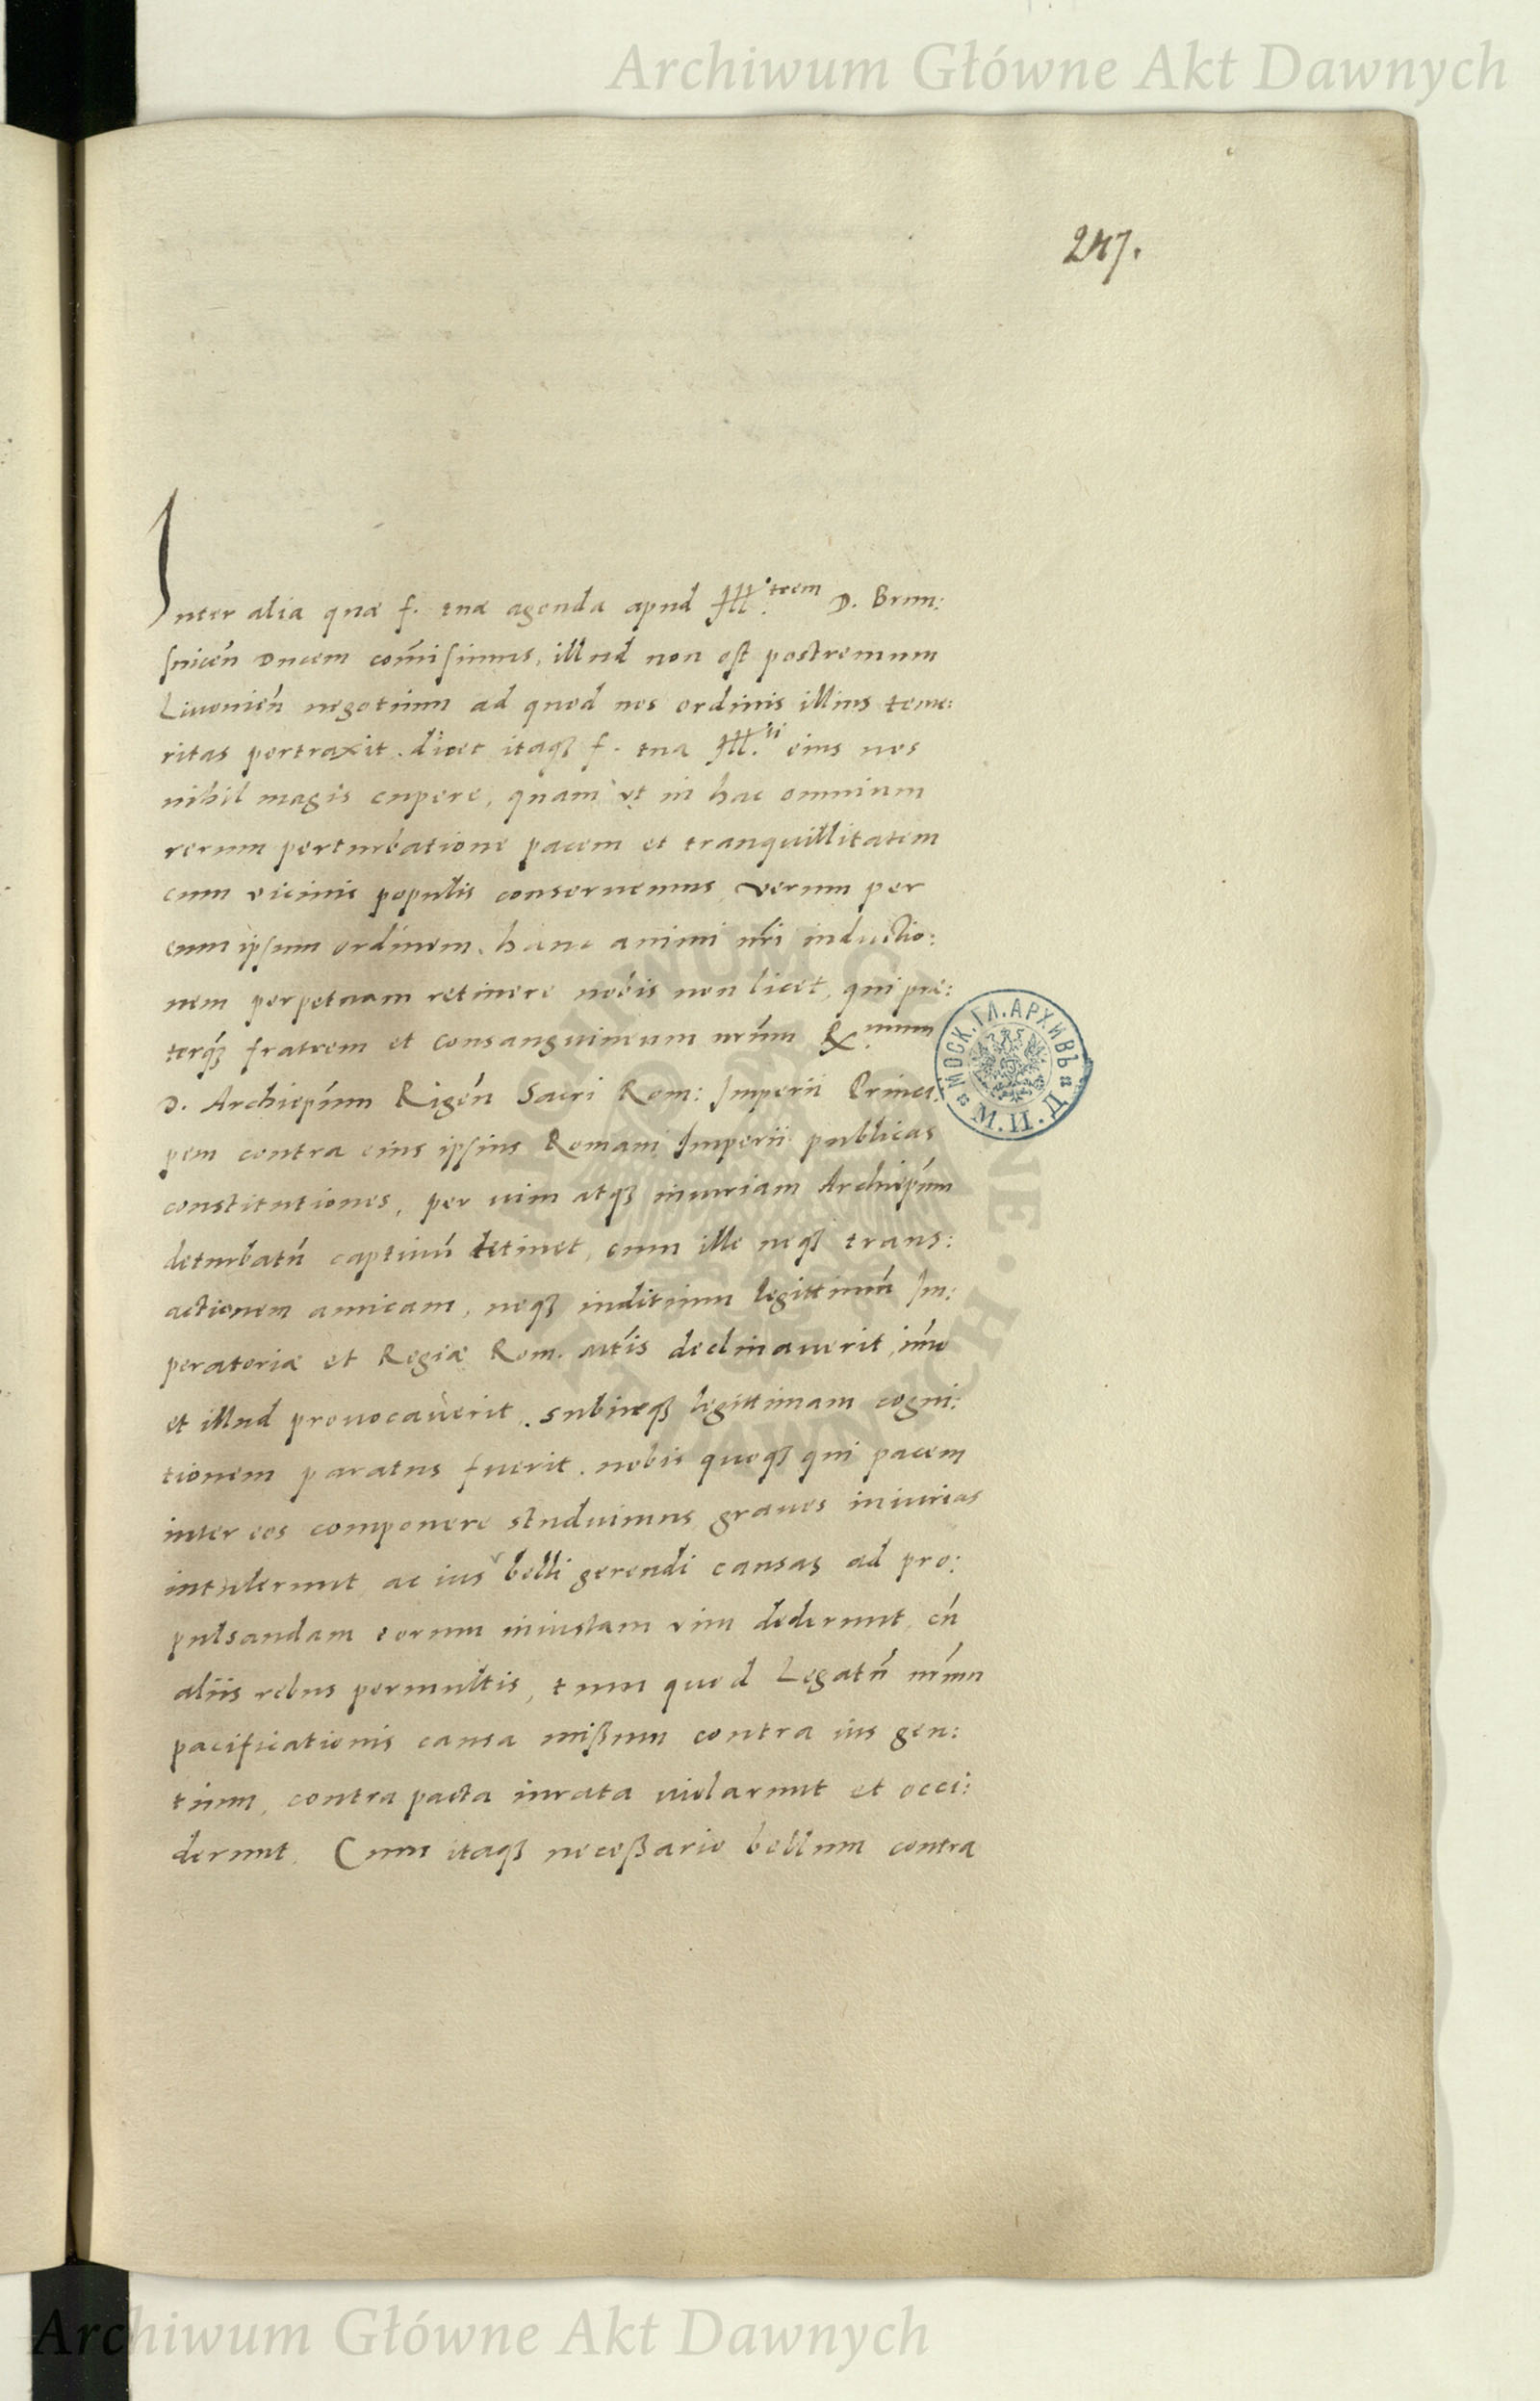 Archiwum Główne Akt Dawnych
247.
Inter alia quæ f. tuæ agenda apud Ill.trem D. Brun:
suicen̄ Ducem com̄isimus, illud non est postremum
Liuonien̄ negotium ad quod nos ordinis illius teme:
ritas pertraxit. dicet itaqꝫ f. tua Ill.ti eius nos
nihil magis cupere, quam vt in hac omnium
rerum perturbatione pacem et tranquillitatem
cum vicinis populis conseruemus, verum per
eum ipsum ordinem, hanc animi nr̄i inductio:
nem perpetuam retinere nobis non licet, qui præ:
terqꝫ fratrem et consanguineum nrūm R.mum
D. Archiepūm Rigen̄ Sacri Rom: Imperii Princi:
pem contra eius ipsius Romani Imperii publicas
constitutiones, per uim atqꝫ iniuriam Archiepūm
deturbatū captiuū detinet, cum ille neqꝫ trans:
actionem amicam, neqꝫ iuditium legittimū Im:
peratoriæ et Regiæ Rom. mtīs declinauerit, im̄o
et illud prouocauerit, subireqꝫ legittimam cogni:
tionem paratus fuerit. nobis quoqꝫ qui pacem
inter eos componere studuimus graues iniurias
intulerunt, ac ius belli gerendi causas ad pro:
pulsandam eorum iniustam vim dederunt, cū
aliis rebus permultis, tum quod Legatū nrūm
pacificationis causa mißum contra ius gen:
tium, contra pacta iurata uiolarunt et occi:
derunt. Cum itaqꝫ neceßario bellum contra
МОСК. ГЛ. АРХИВЪ
М.И.Д.
ARCHIWUM GŁÓWNE AKT DAWNYCH
Archiwum Główne Akt Dawnych